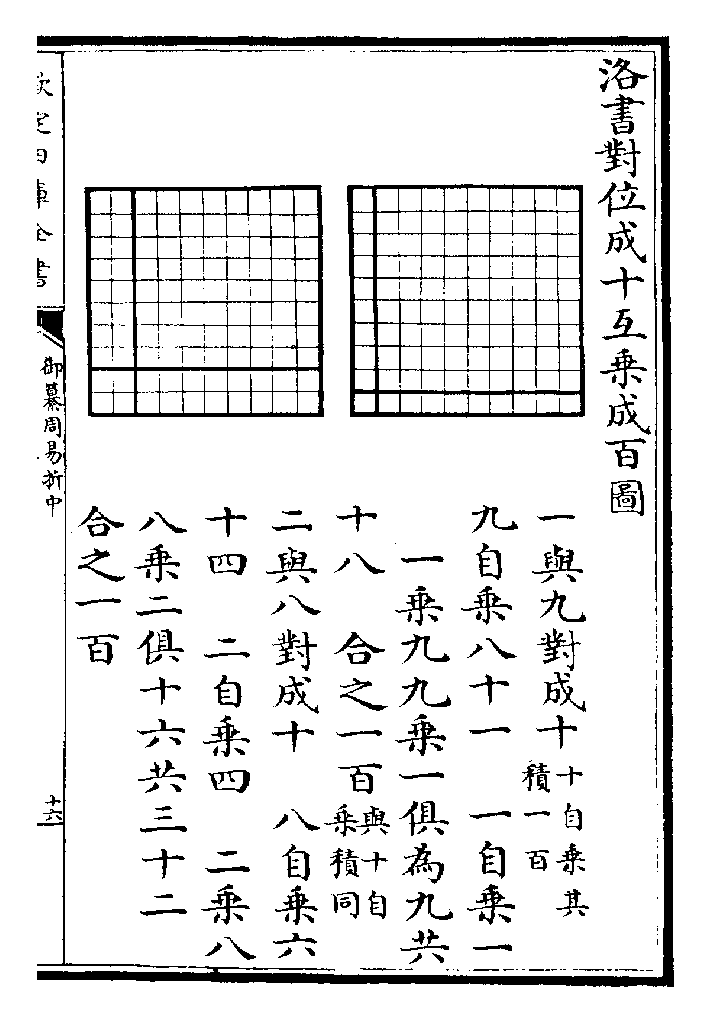 洛書對位成十互乘成百圖
一與九對成十十自乘其
積一百
九自乘八十一　一自乘一
一乘九九乘一俱為九共
十八　合之一百與十自
乘積同
二與八對成十　八自乘六
十四　二自乘四　二乘八
八乘二俱十六共三十二
合之一百
欽定四庫全書
御纂周易折中
十六